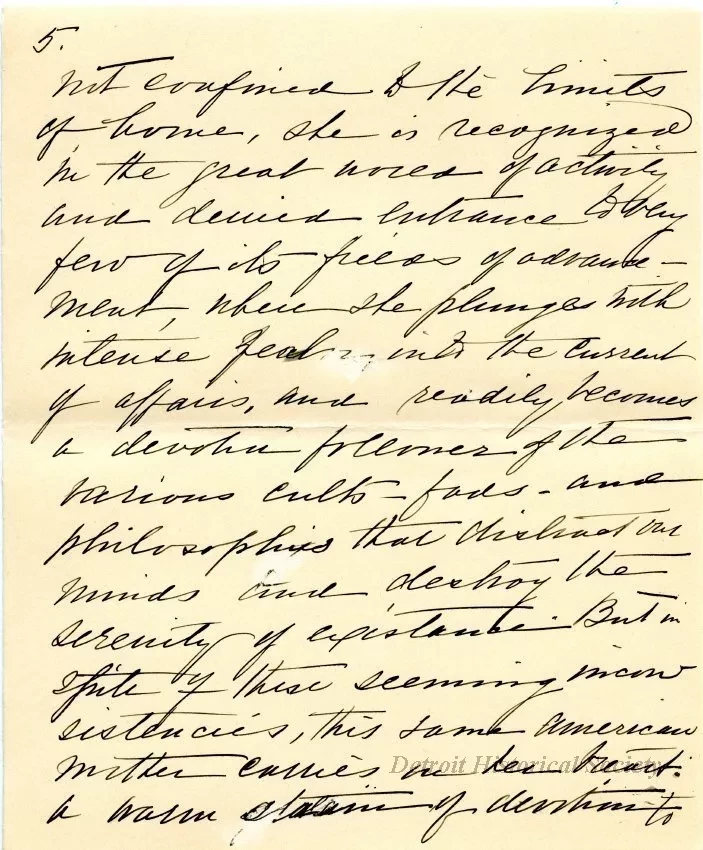 5.
not confined to the limits
of home, she is recognized
in the great world of activity
and denied entrance to very
few of its fields of advance-
ment, where she plunges with
intense feeling into the current
of affairs, and readily becomes
a devoted follower of the
various cults - fads - and
philosophies that distract our
minds and destroy the
serenity of existance. But in
spite of these seeming incon
sistencies, this same American
mother carries in her heart
a warm strain of devotion to
Detroit Historical Society